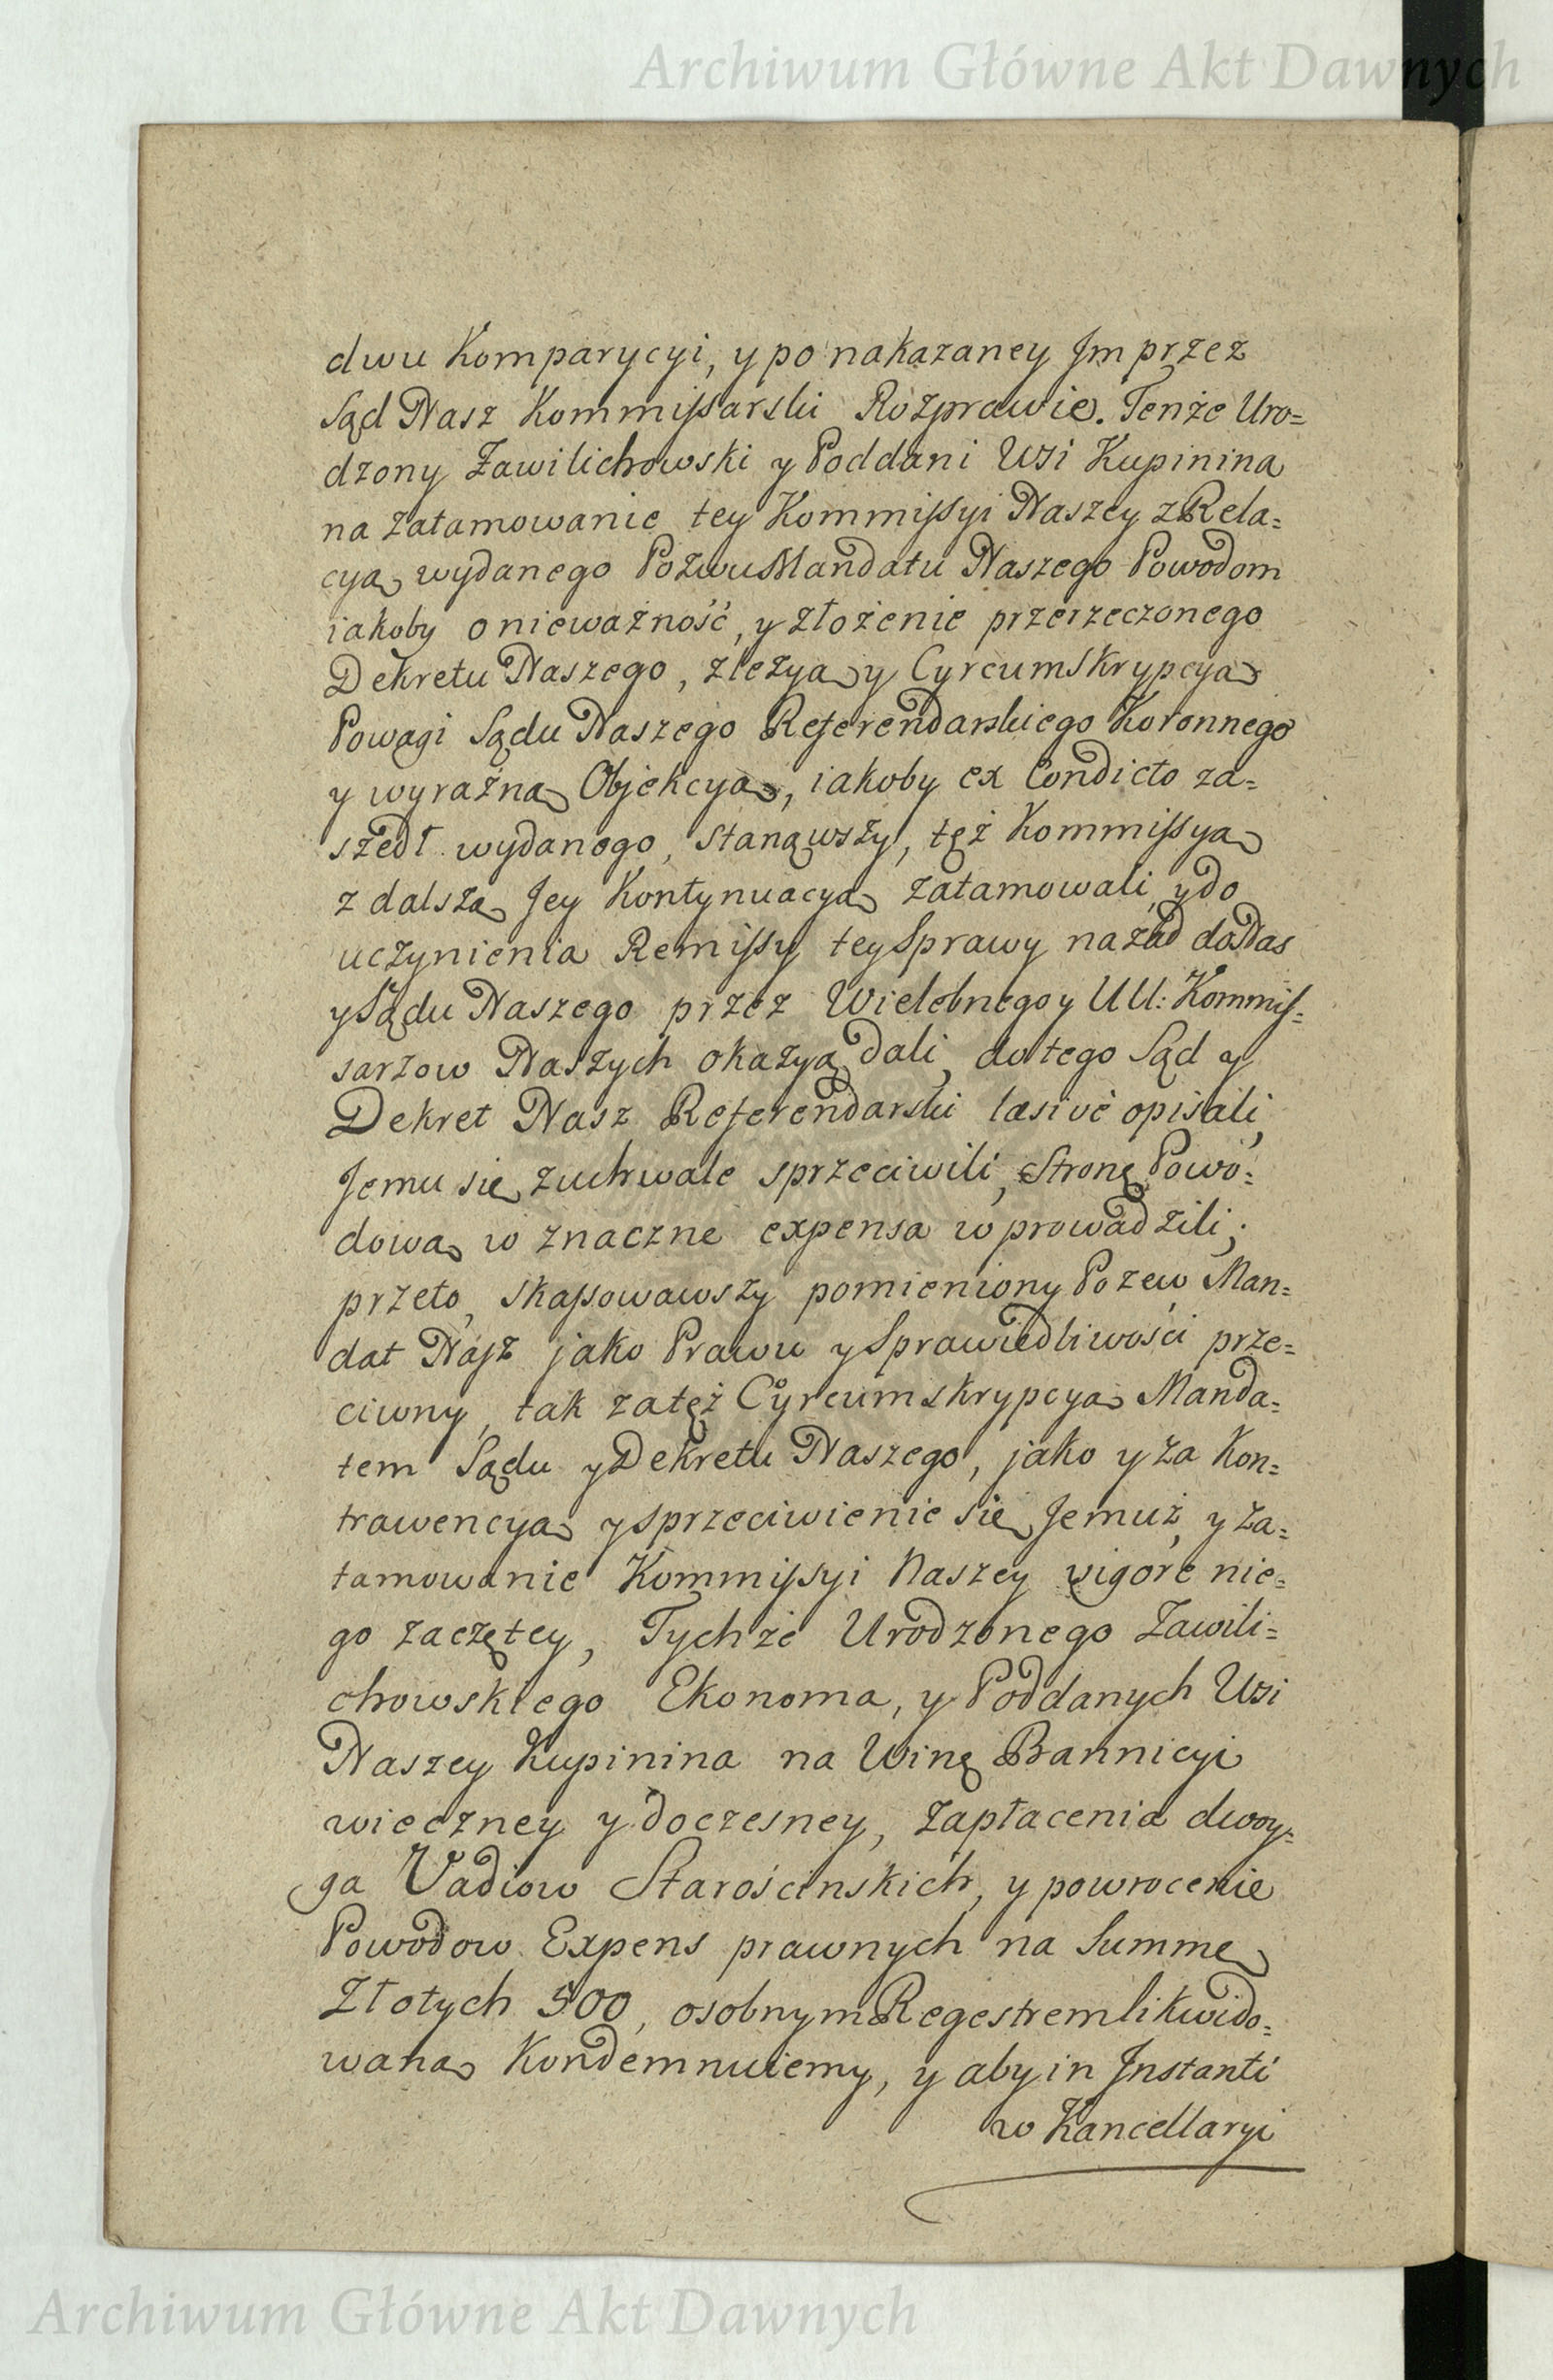 Archiwum Główne Akt Dawnych
dwu Komparycyi, y po nakazaney Jm przez
Sąd Nasz Kommissarski Rozprawie. Tenże Uro=
dzony Zawilichowski y Poddani Wsi Kupinina
na zatamowanie tey Kommissyi Naszey z Rela=
cyą wydanego Pozwu Mandatu Naszego Powodom
iakoby o nieważność, y złożenie przerzeczonego
Dekretu Naszego, z lezyą y Cyrcumskrypcyą
Powagi Sądu Naszego Referendarskiego Koronnego
y wyraźną Objekcyą, iakoby ex Condicto za=
szedł wydanego, stanąwszy, tęż Kommissyą
z dalszą Jey Kontynuacyą zatamowali, y do
uczynienia Remissy tey Sprawy nazad do Nas
y Sądu Naszego przez Wielebnego y UU: Kommis=
sarzow Naszych okazyą dali, do tego Sąd y
Dekret Nasz Referendarski læsivè opisali,
Jemu się zuchwale sprzeciwili, Stronę Powo=
dową w znaczne expensa wprowadzili;
przeto, skassowawszy pomieniony Pozew Man=
dat Nasz jako Prawu y Sprawiedliwości prze=
ciwny, tak za tęż Cyrcumskrypcyą Manda=
tem Sądu y Dekretu Naszego, jako y za Kon=
trawencyą y sprzeciwienie się Jemuż, y za=
tamowanie Kommissyi Naszey vigore nie=
go zaczętey, Tychże Urodzonego Zawili=
chowskiego Ekonoma, y Poddanych Wsi
Naszey Kupinina na Winę Bannicyi
wieczney y doczesney, zapłacenia dwoy=
ga Vadiow Starościnskich, y powrocenie
Powodow Expens prawnych na Summę
Złotych 500, osobnym Regestrem likwido=
waną Kondemnuiemy, y aby in Instanti
w Kancellaryi
Archiwum Główne Akt Dawnych